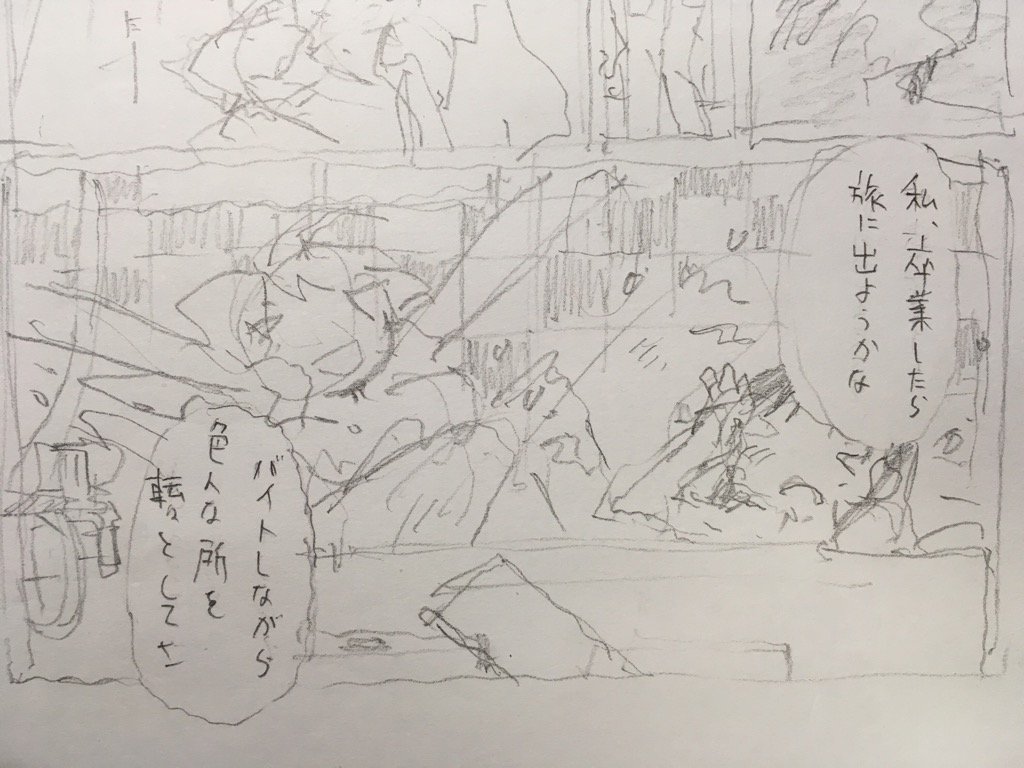 私、卒業したら
旅に出ようかな
バイトしながら
色んな所を
転々としてさ